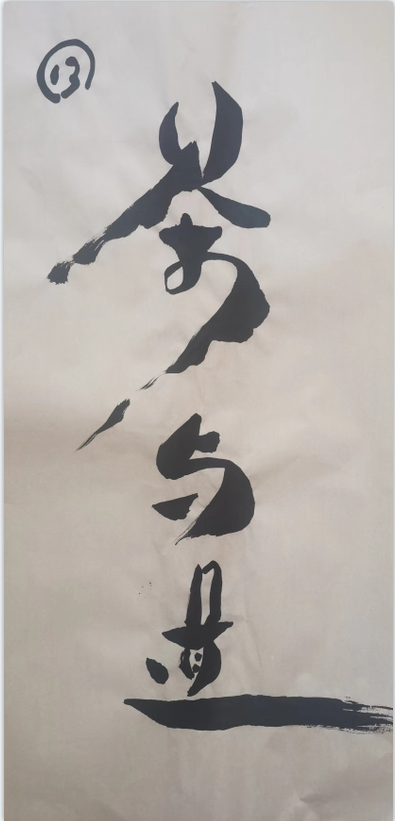 ⑬
茶与道